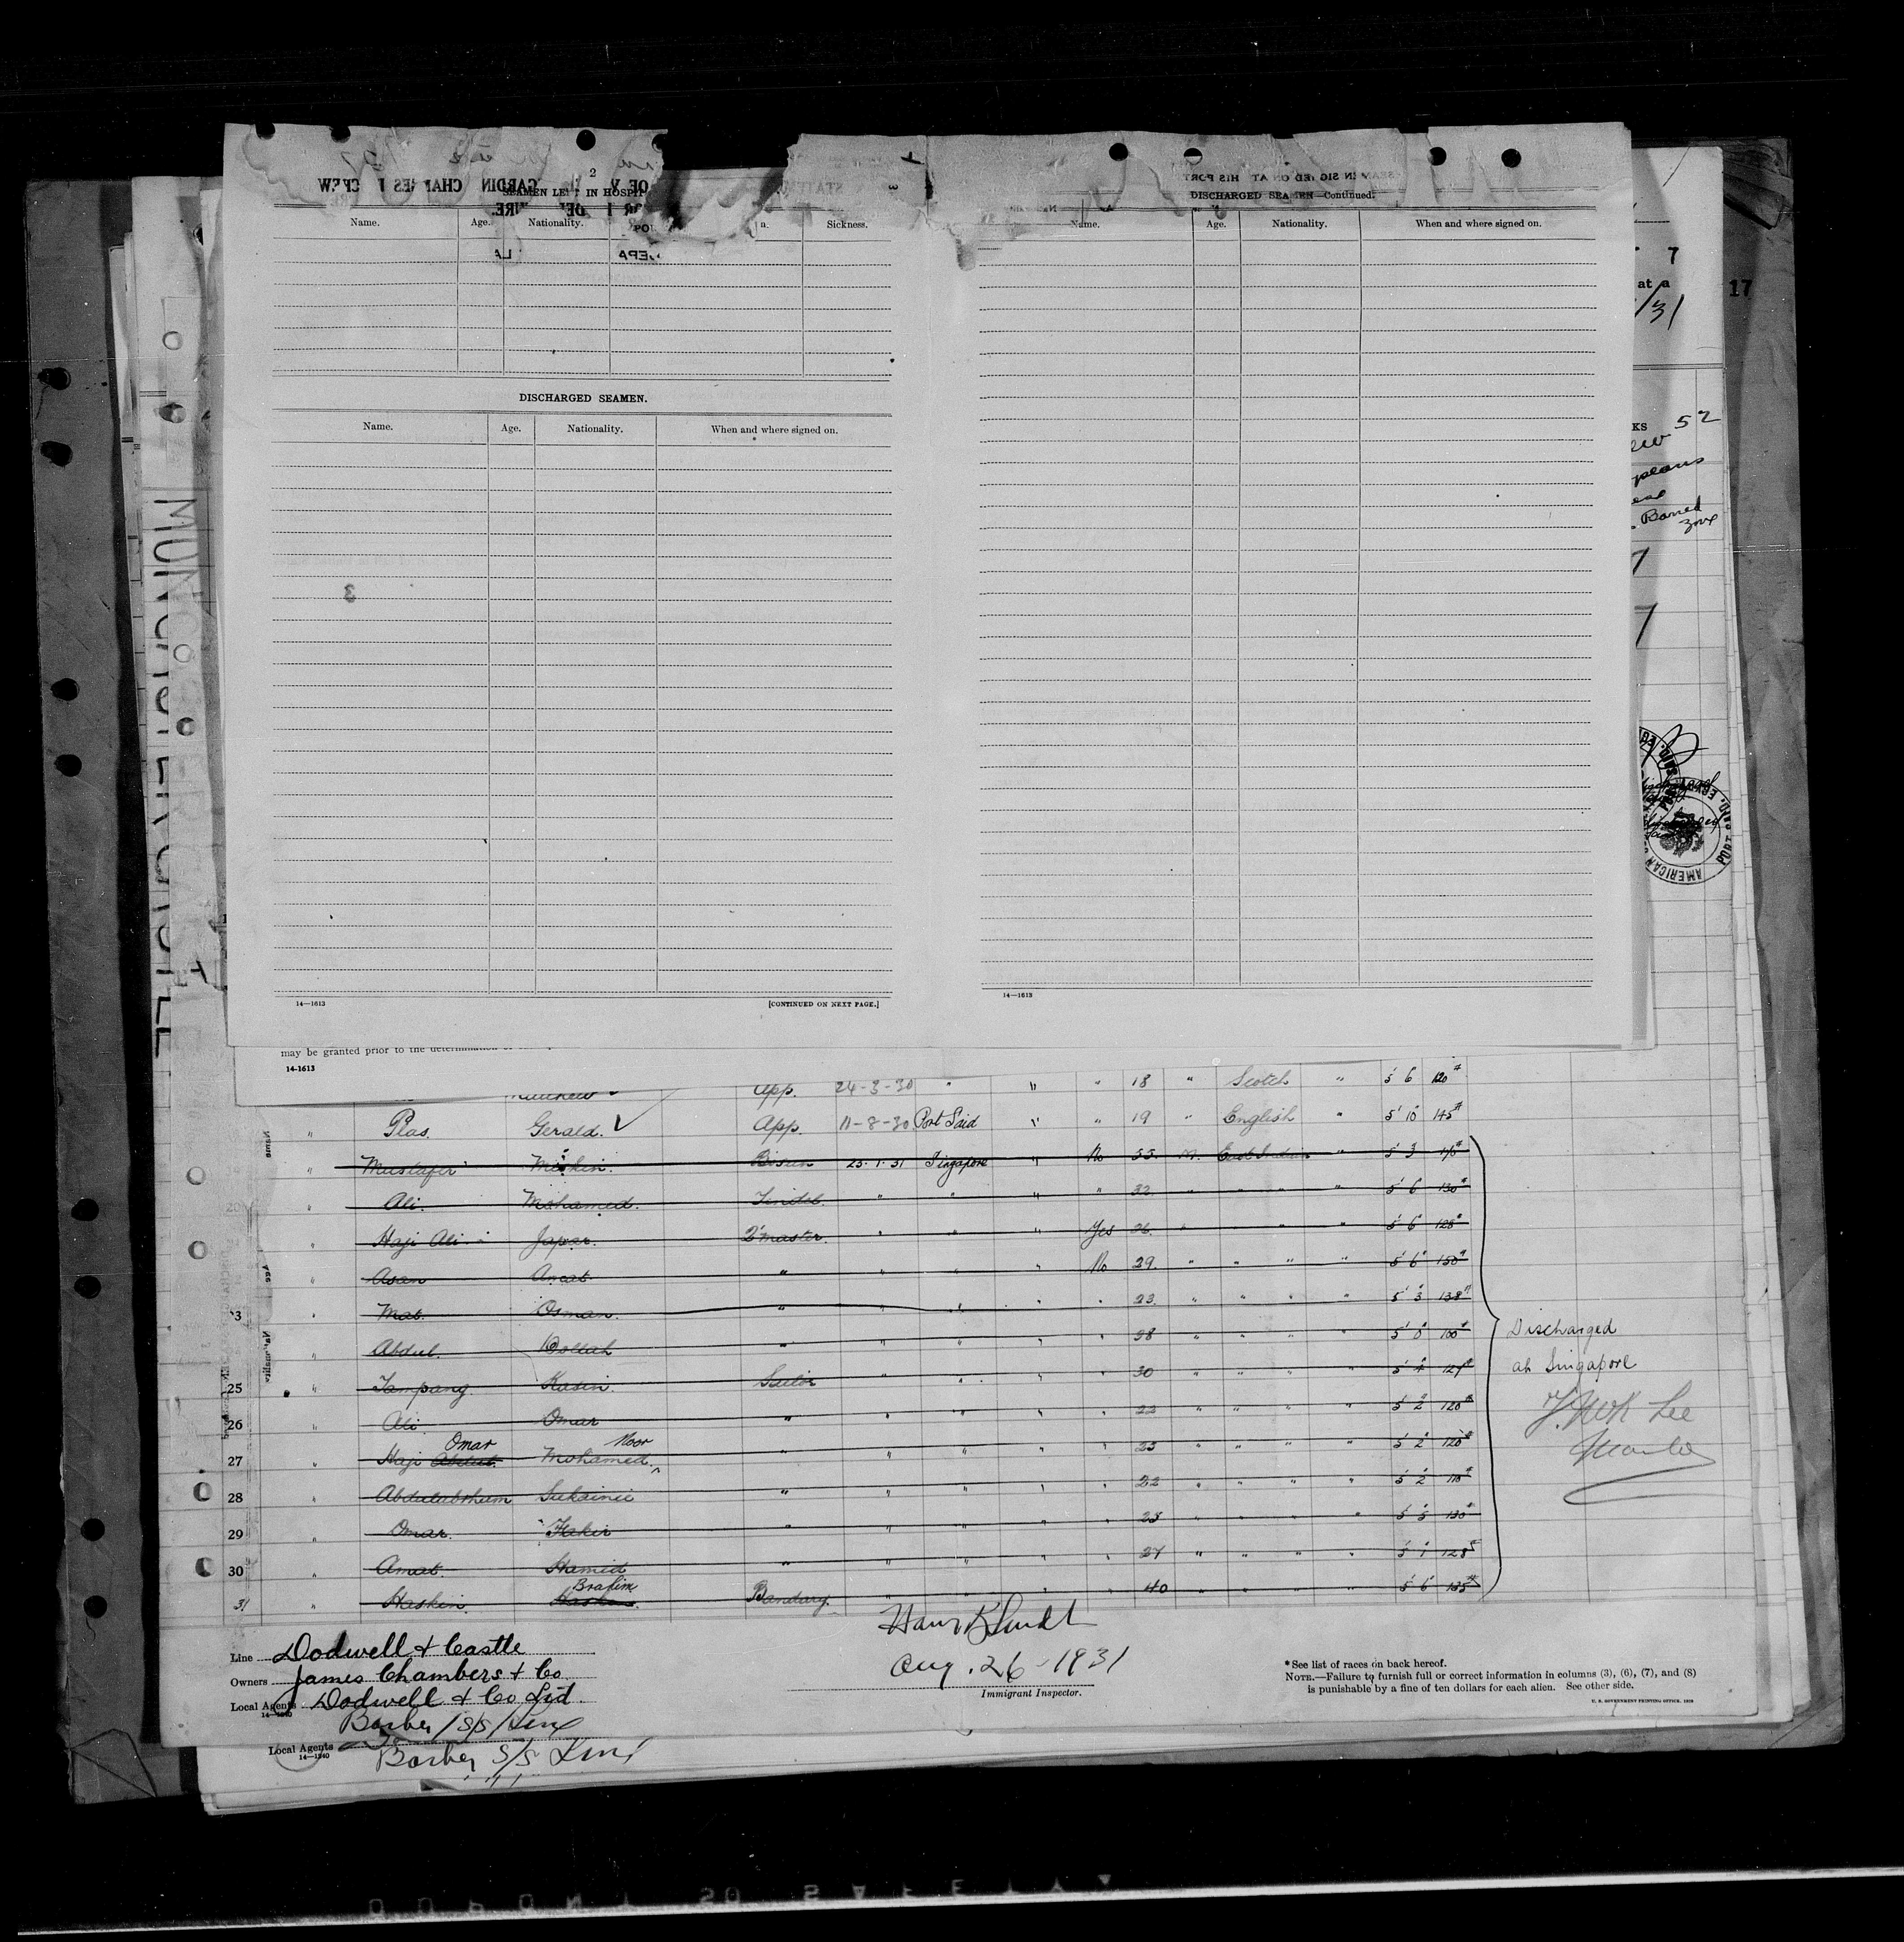 2
SEAMEN LEFT IN HOSPIT
Name. Age. Nationality. a. Sickness.
DISCHARGED SEAMEN.
Name. Age. Nationality. When and where signed on.
14—1613 [CONTINUED ON NEXT PAGE.]
DISCHARGED SEAMEN—Continued.
Name. Age. Nationality. When and where signed on.
14—1613
7
at a
/31
17
KS
52
Barred
zone
AMERICAN
PORT SAID, EGYPT
MUNCASTER CASTLE
may be granted prior to the determination of
14-1613
Matthew App. 24-3-30 " " " 18 " Scotch " 5' 6" 120#
" Plas. Gerald. ✓ App. 11-8-30 Port Said " " 19 " English " 5' 10" 145#
" Mustafir Miskin. Bosun 23.1.31 Singapore " No 55. M. East Indian " 5' 3"
" Ali. Mohamed. Tindal. " " " " 32 " " " " 5' 6" 130#
" Haji Ali Japar. Q'master. " " " Yes 26. " " " " 5' 6" 128#
" Asan Amat " " " " No 29. " " " " 5' 6" 150#
23 " Mat. Osman. " " " " " 23. " " " " 5' 3" 138#
" Abdul. Dollah " " " " " 28 " " " " 5' 0" 100#
25 " Tampang Kasin. Sailor " " " " 30 " " " " 5' 4" 127#
26 " Ali Omar " " " " " 22 " " " " 5' 2" 120#
27 " Haji Abdul. Omar Mohamed. Noor " " " " " 23 " " " " 5' 2" 120#
28 " Abdulabrhum Sukainii " " " " " 22 " " " " 5' 2" 110#
29 " Omar. Fakir " " " " " 23 " " " " 5' 5" 130#
30 " Amat. Hamid " " " " " 27 " " " " 5' 1" 128#
31 " Haskin. Brahim Bandary. " " " " 40 " " " " 5' 6" 135#
Discharged
at Singapore
Line Dodwell & Castle
Owners James Chambers & Co.
Local Agents Dodwell & Co Ltd.
14—1240
Barber S/S Line
Aug. 26-1931
Immigrant Inspector.
*See list of races on back hereof.
NOTE.—Failure to furnish full or correct information in columns (3), (6), (7), and (8)
is punishable by a fine of ten dollars for each alien. See other side.
U. S. GOVERNMENT PRINTING OFFICE: 1928
Local Agents
14—1240
Barber S/S Line